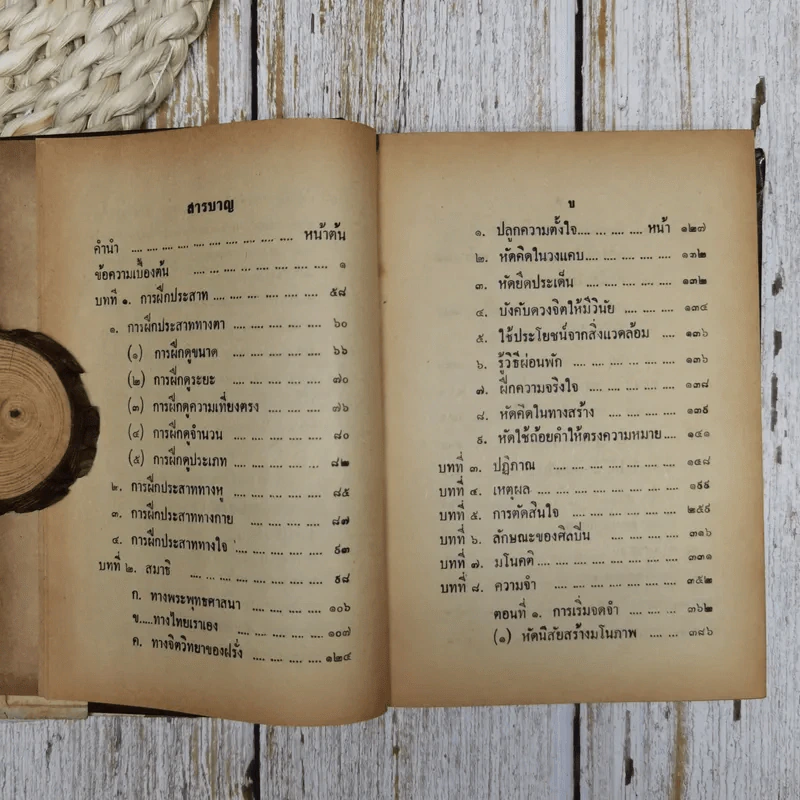 สารบาญ
คำนำ .... .... .... .... .... .... .... .... .... หน้าต้น
ข้อความเบื้องต้น .... .... .... .... .... .... .... ๑
บทที่ ๑. การฝึกประสาท .... .... .... .... .... .... ๕๘
๑. การฝึกประสาททางตา .... .... .... .... .... ๖๐
(๑) การฝึกดูขนาด .... .... .... .... .... ๖๖
(๒) การฝึกดูระยะ .... .... .... .... .... ๗๐
(๓) การฝึกดูความเที่ยงตรง .... .... .... ๗๖
(๔) การฝึกดูจำนวน .... .... .... .... .... ๘๐
(๕) การฝึกดูประเภท .... .... .... .... ... ๘๒
๒. การฝึกประสาททางหู .... .... .... .... .... ๘๕
๓. การฝึกประสาททางกาย .... .... .... .... ๘๗
๔. การฝึกประสาททางใจ .... .... .... .... .... ๙๓
บทที่ ๒. สมาธิ .... .... .... .... .... .... .... ๙๘
ก. ทางพระพุทธศาสนา .... .... .... .... ๑๐๖
ข.....ทางไทยเราเอง .... .... .... .... .... ๑๐๗
ค. ทางจิตวิทยาของฝรั่ง .... .... .... .... ๑๒๔
ข
๑. ปลูกความตั้งใจ.... .... .... .... หน้า ๑๒๗
๒. หัดคิดในวงแคบ.... .... .... .... .... ๑๓๒
๓. หัดยึดประเด็น .... .... .... .... .... ๑๓๒
๔. บังคับดวงจิตให้มีวินัย .... .... .... ๑๓๔
๕. ใช้ประโยชน์จากสิ่งแวดล้อม .... ๑๓๖
๖. รู้วิธีผ่อนพัก .... .... .... .... .... ๑๓๖
๗. ฝึกความจริงใจ .... .... .... .... ๑๓๘
๘. หัดคิดในทางสร้าง .... .... .... .... ๑๓๙
๙. หัดใช้ถ้อยคำให้ตรงความหมาย.... ๑๔๑
บทที่ ๓. ปฏิภาณ .... .... .... .... .... .... ๑๔๘
บทที่ ๔. เหตุผล .... .... .... .... .... .... .... ๑๙๙
บทที่ ๕. การตัดสินใจ .... .... .... .... .... ๒๕๙
บทที่ ๖. ลักษณะของศิลปิน .... .... .... .... ๓๑๖
บทที่ ๗. มโนคติ .... .... .... .... .... .... .... ๓๓๑
บทที่ ๘. ความจำ .... .... .... .... .... .... ๓๕๒
ตอนที่ ๑. การเริ่มจดจำ .... .... .... ๓๖๒
(๑) หัดนิสัยสร้างมโนภาพ .... .... ๓๘๖